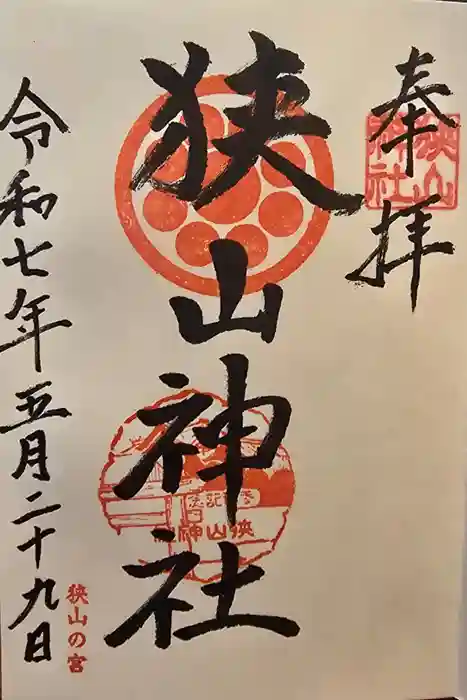 奉拝
狭山神社
狭山神社
参拝記念
狭山神
令和七年五月二十九日
狭山の宮